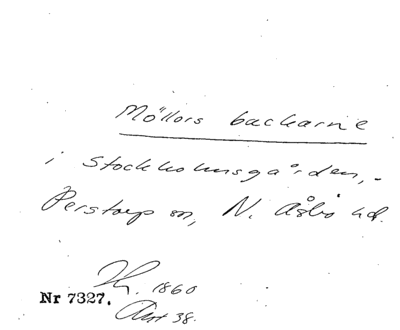 Möllors backarne
i Stockholmsgården,-
Perstorp sn, N. Åsbo hd.
1860
Nr 7327.
38.